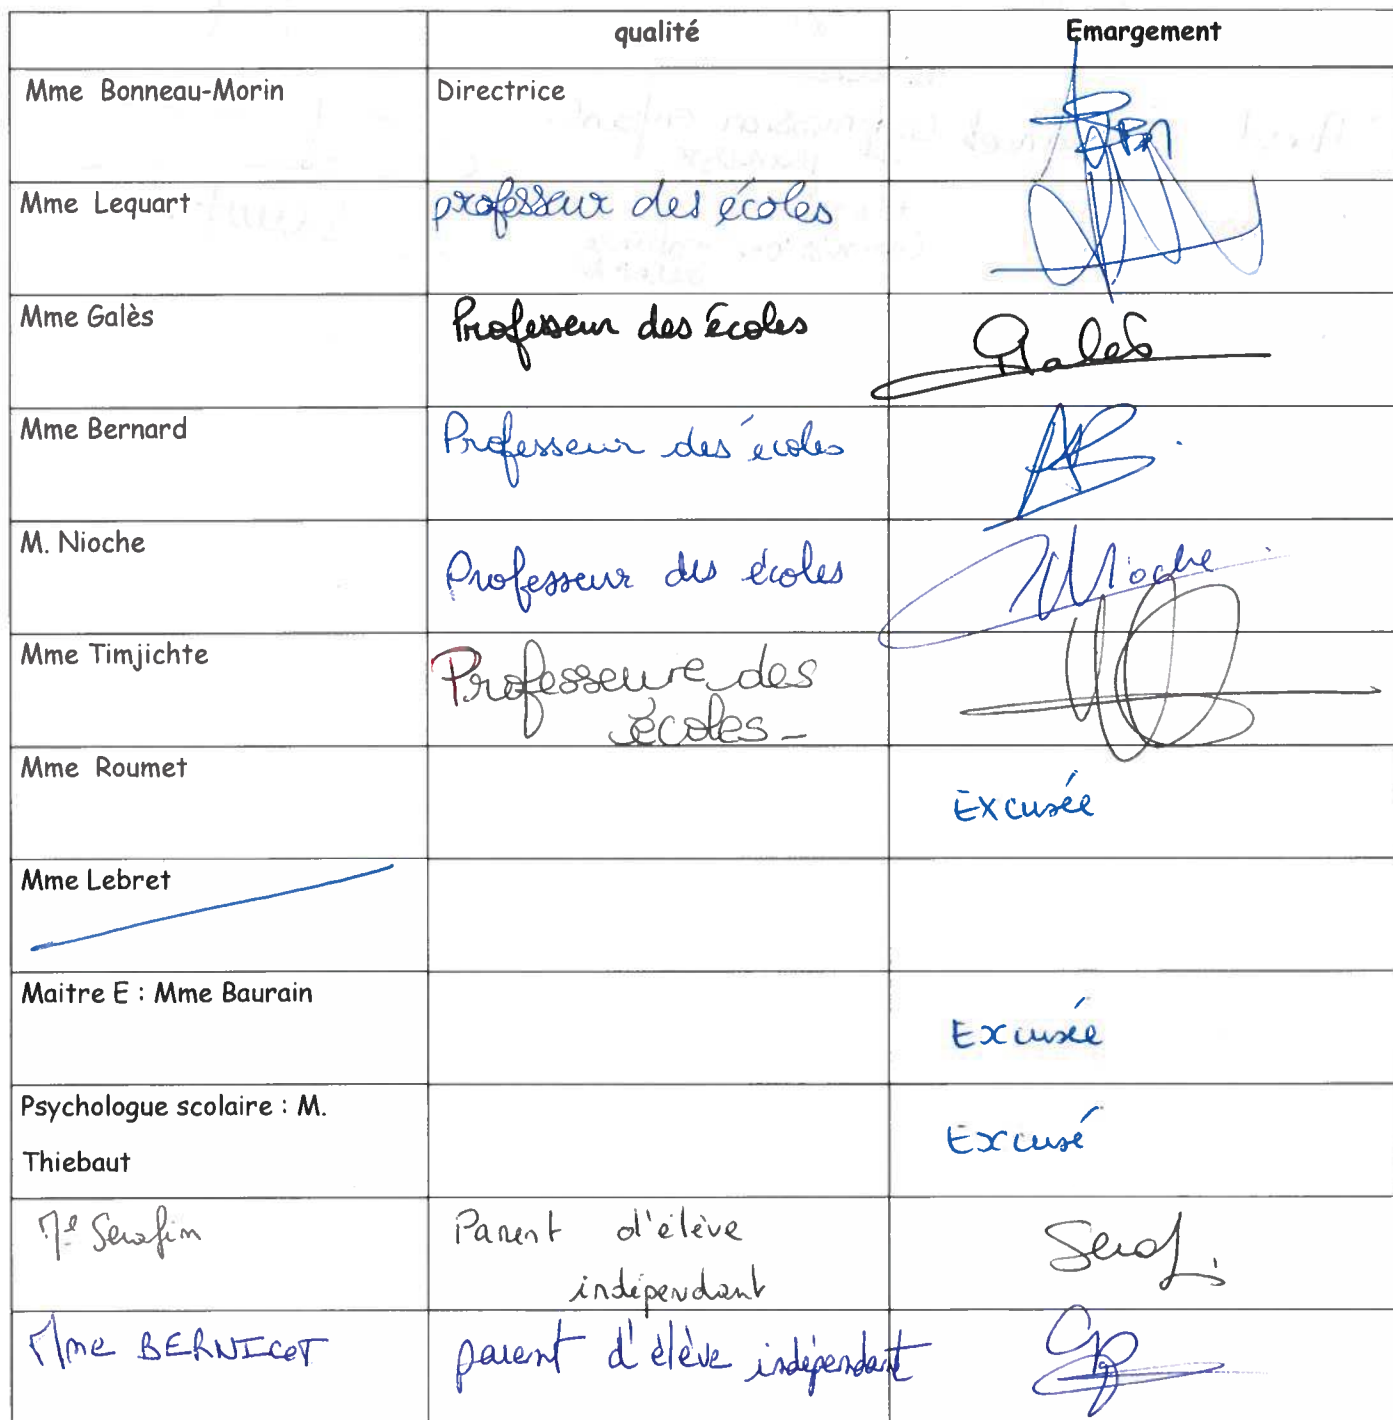 qualité Emargement
Mme Bonneau-Morin Directrice
Mme Lequart professeur des écoles
Mme Galès Professeur des écoles Galès
Mme Bernard Professeur des écoles AB
M. Nioche Professeur des écoles Nioche
Mme Timjichte Professeure des
écoles
Mme Roumet Excusée
Mme Lebret
Maitre E : Mme Baurain Excusée
Psychologue scolaire : M.
Thiebaut Excusé
Me Serafin Parent d'élève
indépendant
Mme BERNICOT parent d'élève indépendant